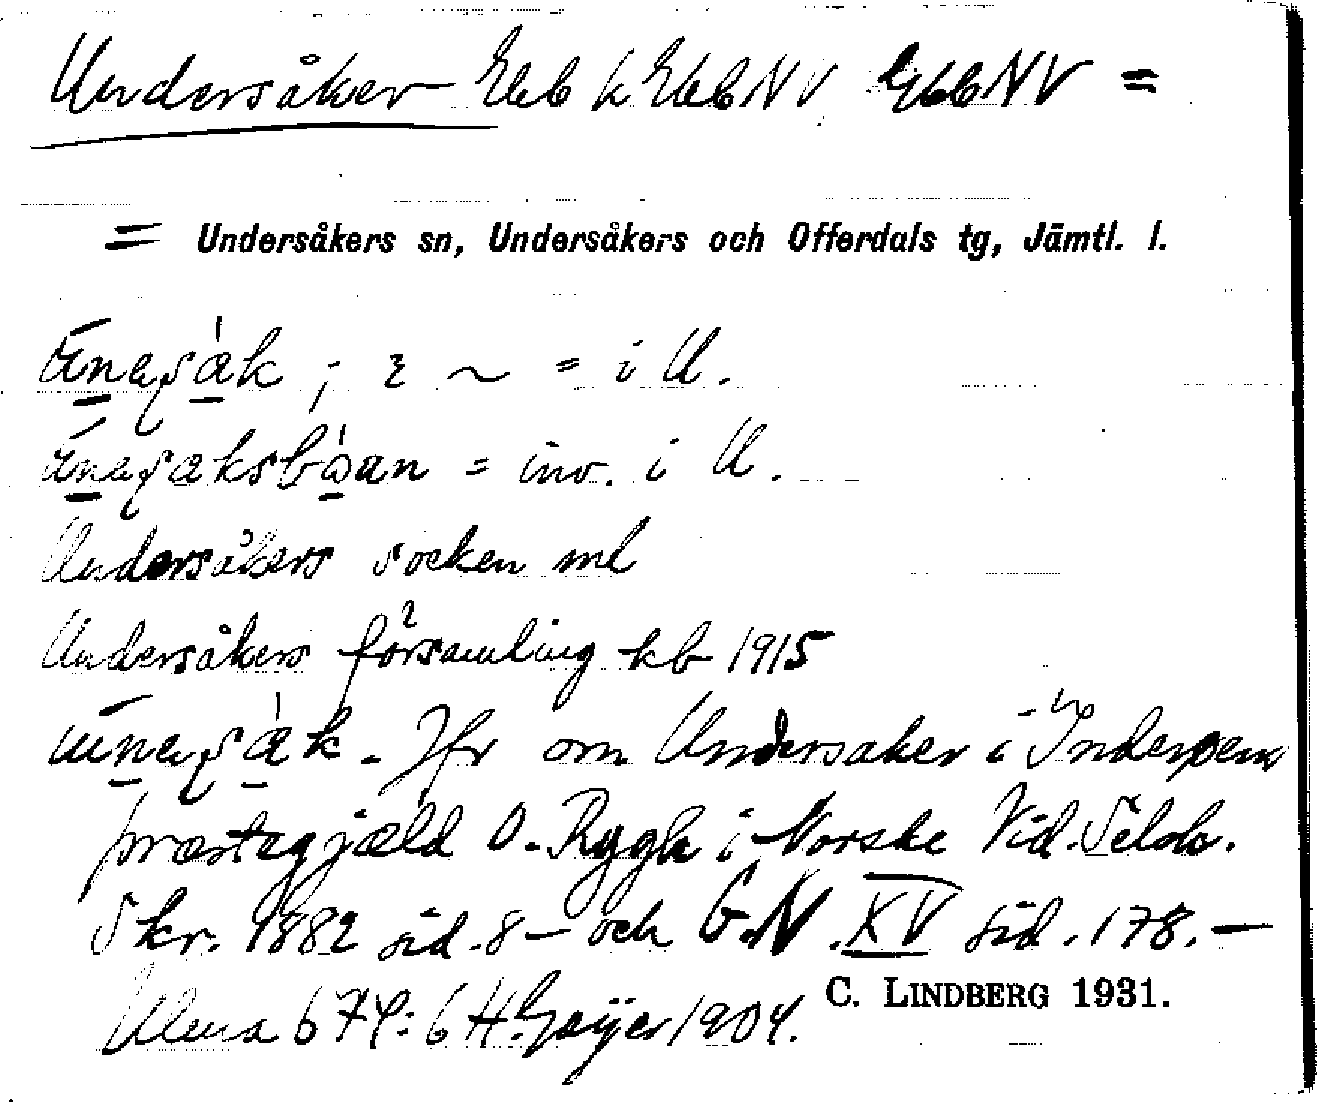 Undersåker Ebb k EbbNV EbbNV =
= Undersåkers sn, Undersåkers och Offerdals tg, Jämtl. l.
; ~ = i U.
= inv. i U.
Undersåkers socken ml
Undersåkers församling kb 1915
. Jfr om Undersaker i Inderøens
præstegjæld O. Rygh i Norske Vid. Selsk.
Skr. 1882 sid. 8 – och G.N. XV sid. 178. –
Ulma 674:6 H. Geijer 1904.
C. LINDBERG 1931.